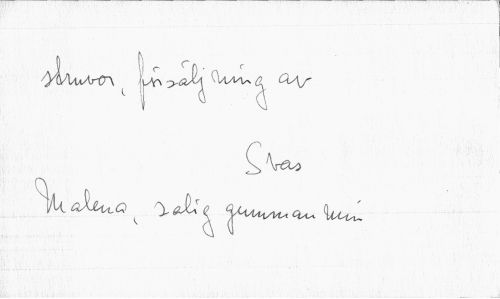 struvor, försäljning av
Svas
Malena, salig gumman min